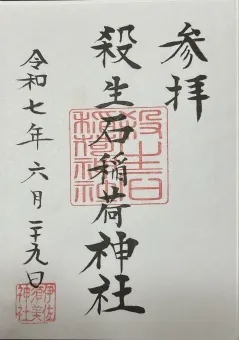 参拝
殺生石稲荷神社
令和七年六月二十九日
殺生石
稲荷神社
伊佐
須美
神社